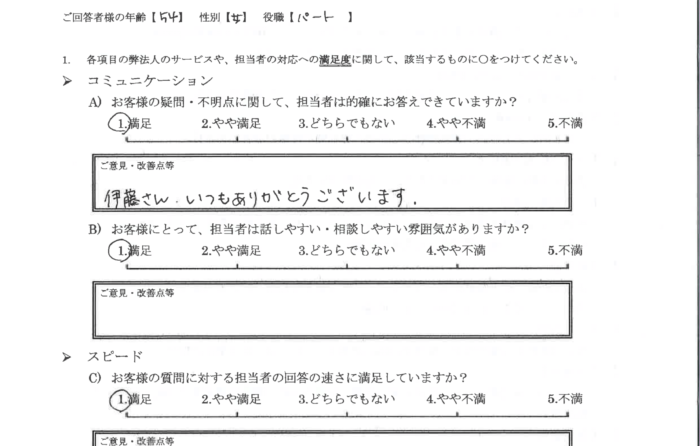 ご回答者様の年齢【54】 性別【女】 役職【パート 】
1. 各項目の弊法人のサービスや、担当者の対応への満足度に関して、該当するものに○をつけてください。
➢ コミュニケーション
A) お客様の疑問・不明点に関して、担当者は的確にお答えできていますか？
1.満足 2.やや満足 3.どちらでもない 4.やや不満 5.不満
ご意見・改善点等
伊藤さん、いつもありがとうございます.
B) お客様にとって、担当者は話しやすい・相談しやすい雰囲気がありますか？
1.満足 2.やや満足 3.どちらでもない 4.やや不満 5.不満
ご意見・改善点等
➢ スピード
C) お客様の質問に対する担当者の回答の速さに満足していますか？
1.満足 2.やや満足 3.どちらでもない 4.やや不満 5.不満
ご意見・改善点等